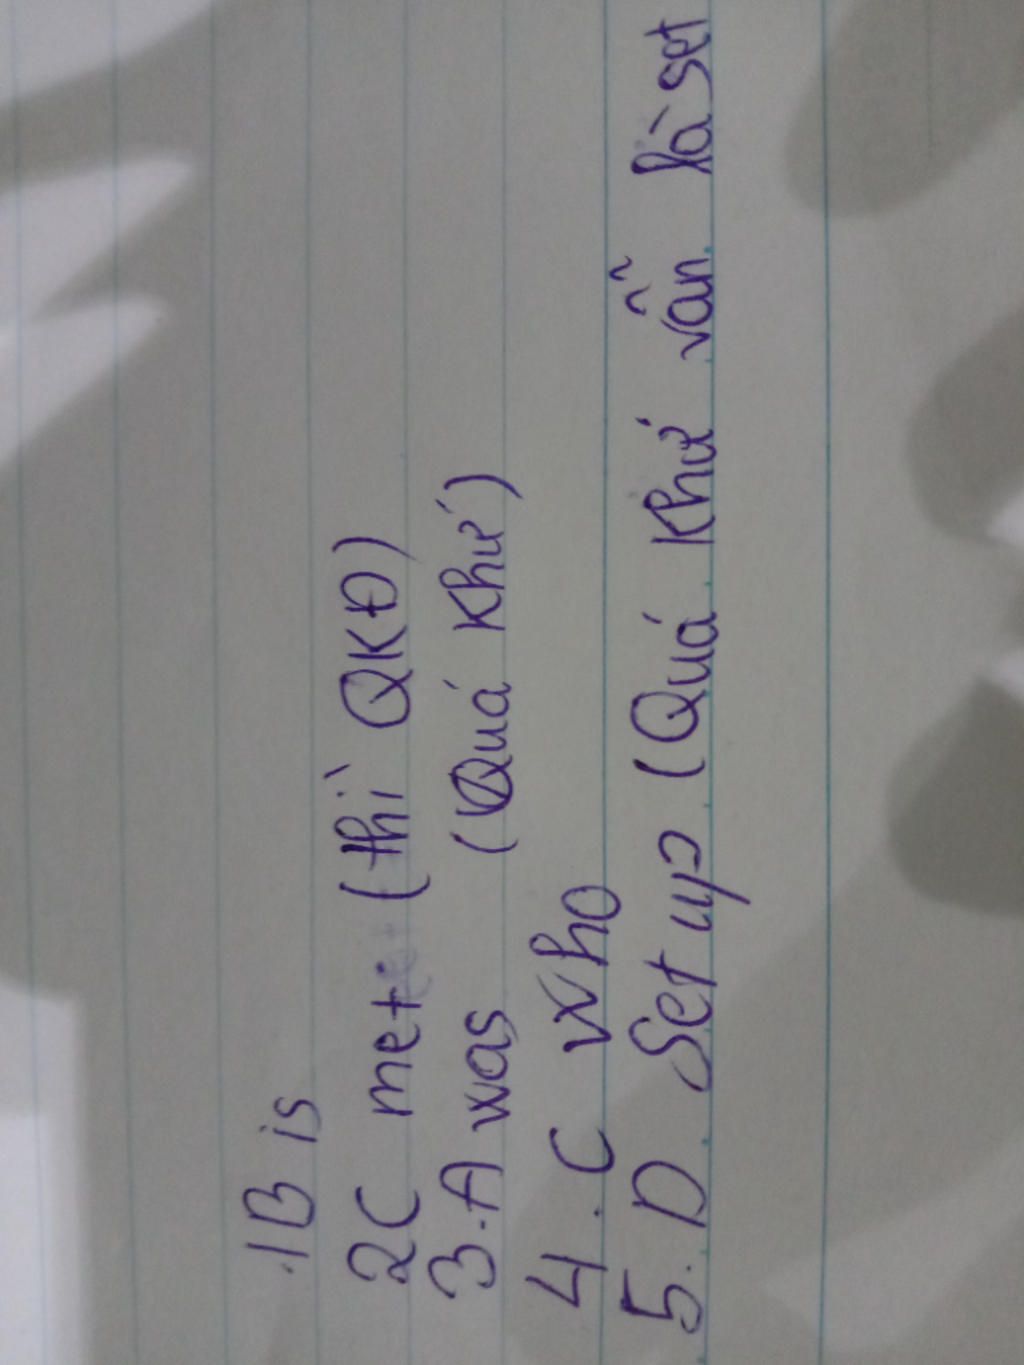 .1B is
2C met (thì QKĐ)
3.A was (Quá Khứ)
4. C Who
5. D Set up (Quá Khứ vẫn là set